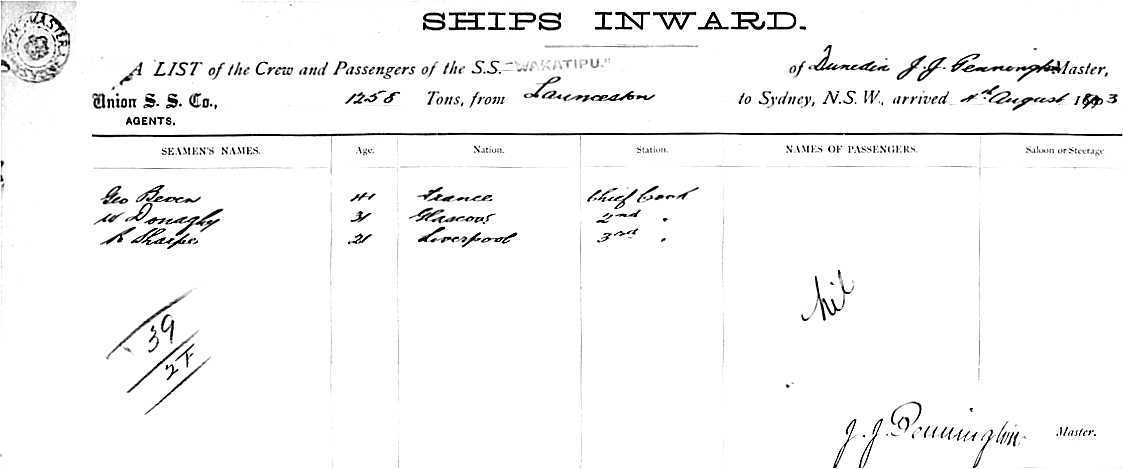 SHIPS INWARD.
A LIST of the Crew and Passengers of the S.S. "WAKATIPU." of Dunedin J. J. Pennington Master,
Union S. S. Co., 1258 Tons, from Launceston to Sydney, N.S.W., arrived 4th August 1903
AGENTS.
SEAMEN'S NAMES. Age. Nation. Station. NAMES OF PASSENGERS. Saloon or Steetage
Geo Beven 41 France Chief Cook
W Donaghy 31 Glascow 2nd "
R Sharpe 21 Liverpool 3rd "
nil
39
27
J. J. Pennington Master.